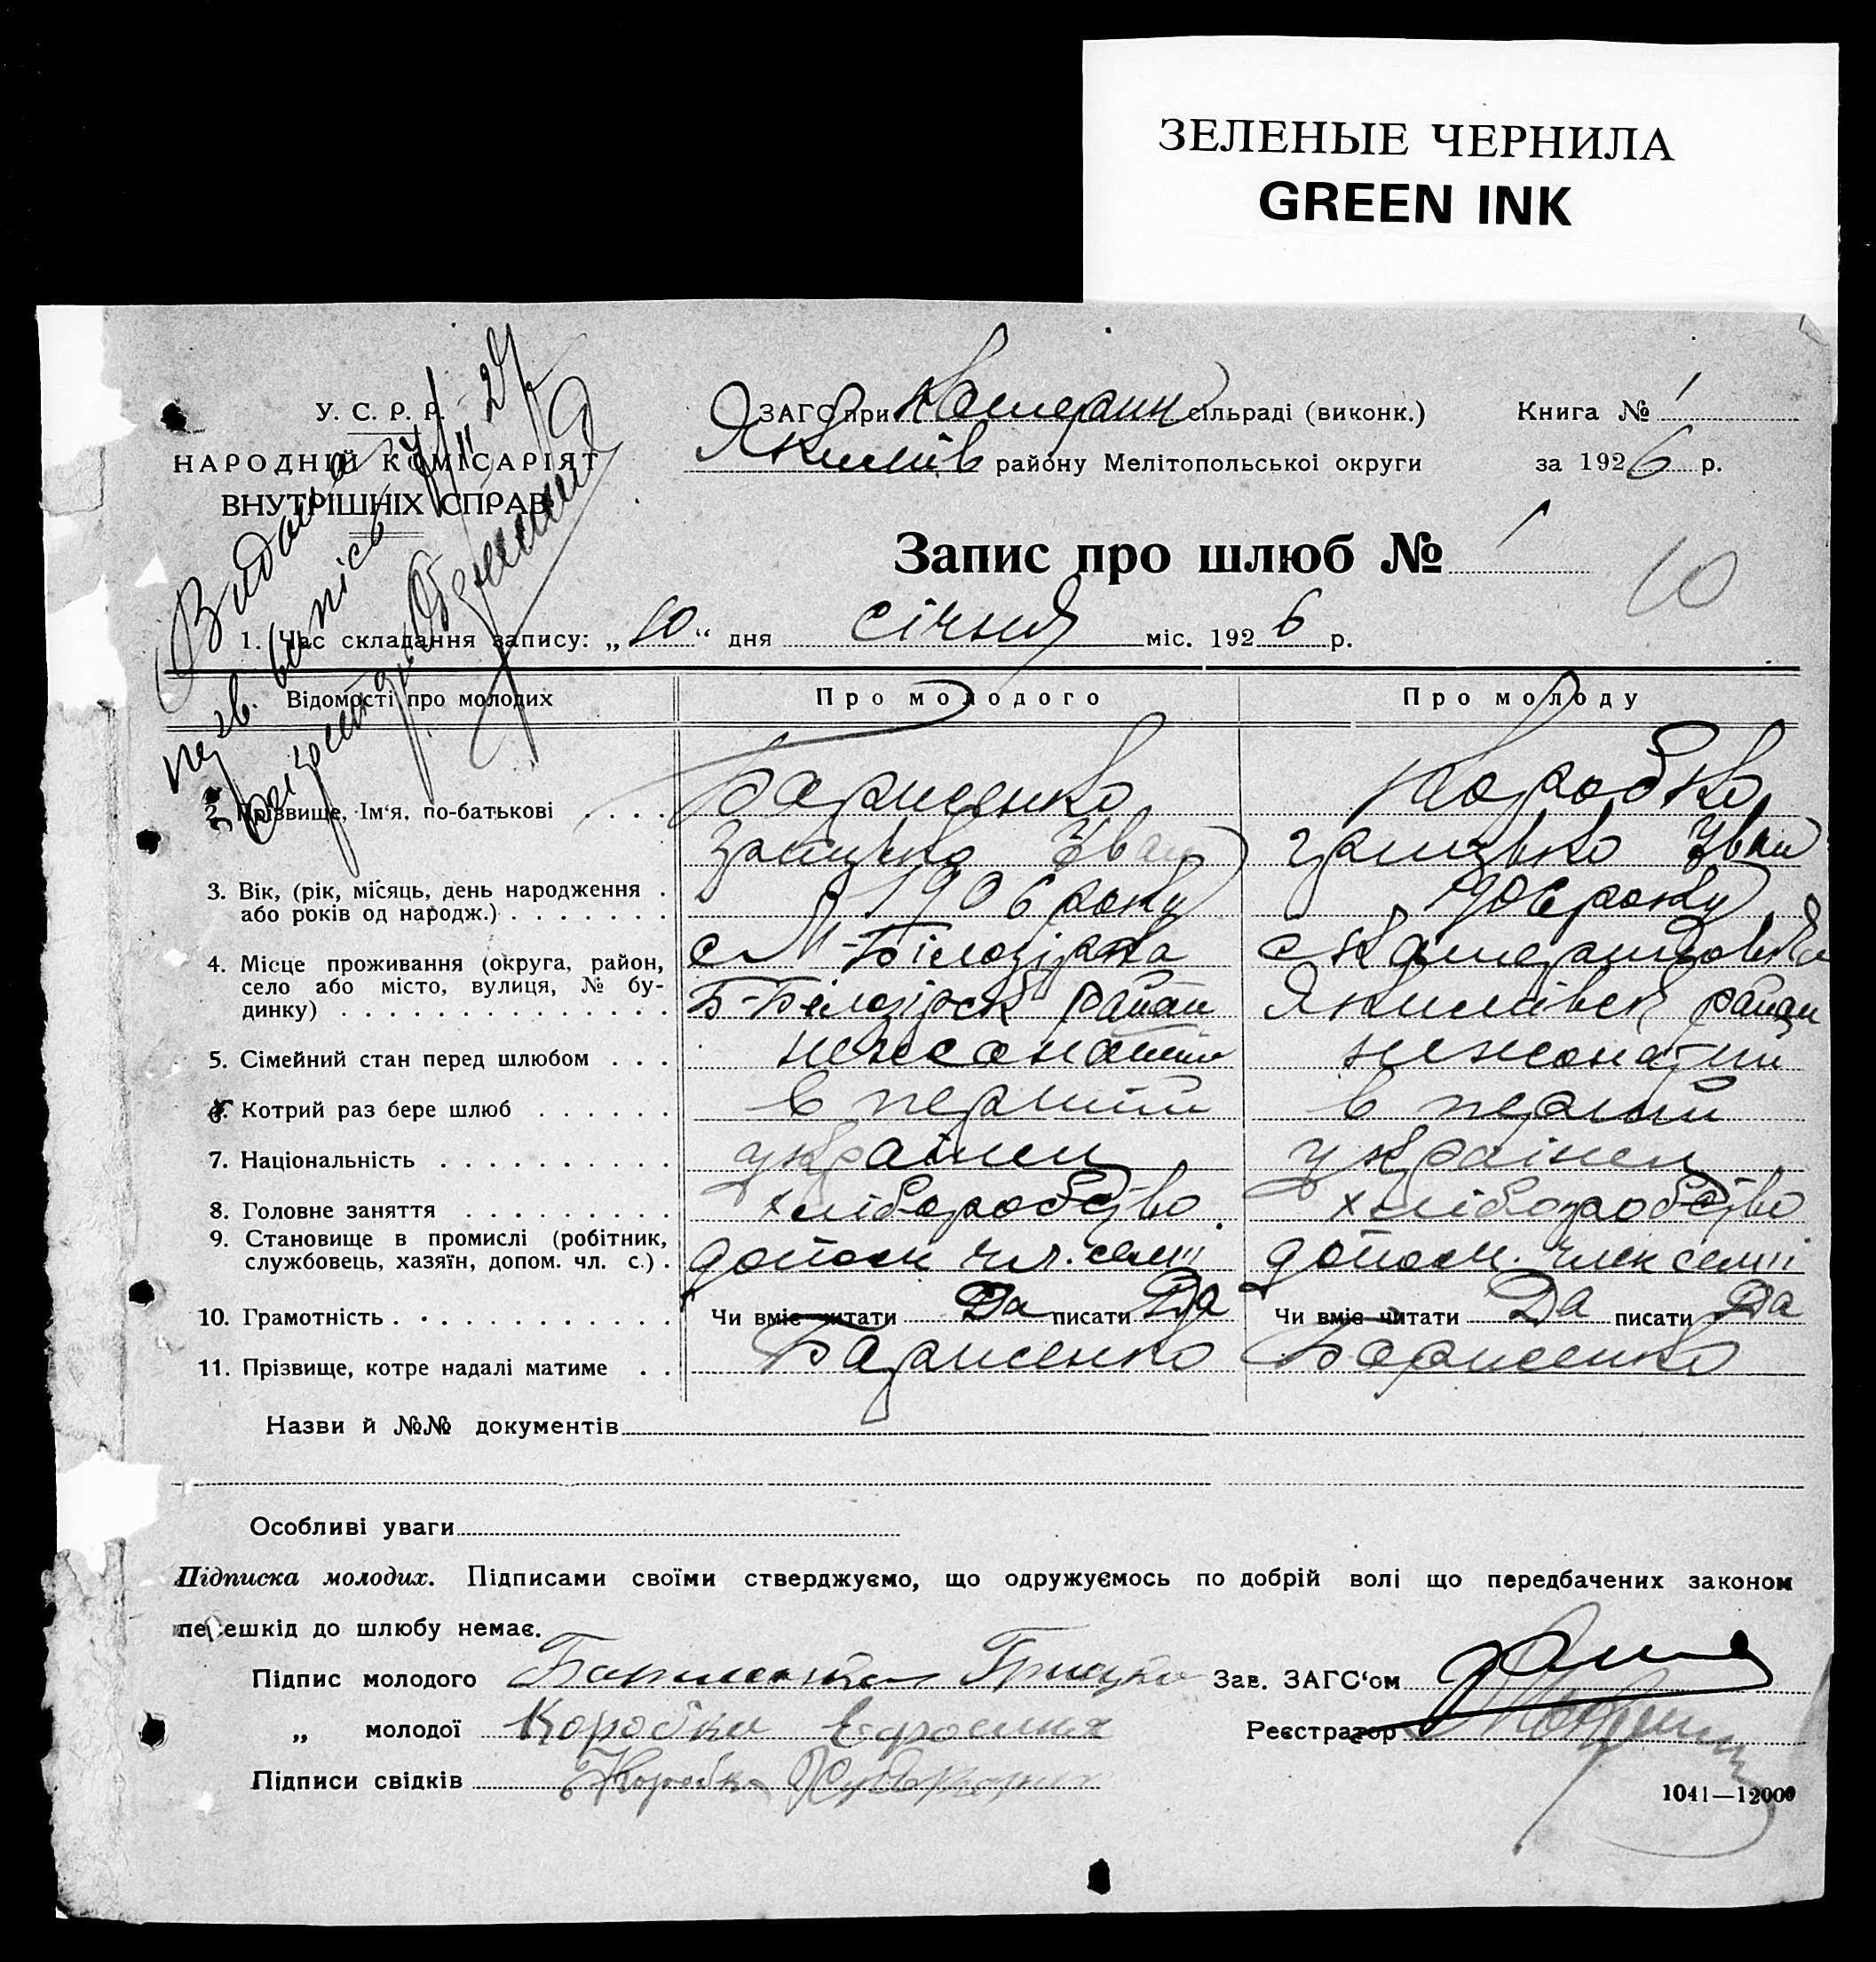 ЗЕЛЕНЫЕ ЧЕРНИЛА
GREEN INK
У. С. Р. Р.
НАРОДНІЙ КОМІСАРІЯТ
ВНУТРІШНІХ СПРАВ
ЗАГС при Катерин сільраді (виконк.)
Якимів району Мелітопольської округи
Книга № 1
за 1926 р.
Видана
Запис про шлюб № 1
10
1. Час складання запису: „10“ дня січня міс. 1926 р.
Відомості про молодих Про молодого Про молоду
2. Прізвище, Ім‘я, по-батькові . . . . Барисенко Коробко
Іван Іван
3. Вік, (рік, місяць, день народження . 1906 року 1906 року
або років од народж.) . . . . . . .
4. Місце проживання (округа, район, с М-Білозірка с Катериновка
село або місто, вулиця, № бу- Б-Білозірск район Якимівск район
динку) . . . . . . . . . . . . . .
5. Сімейний стан перед шлюбом . . . нежонатий нежонатий
6. Котрий раз бере шлюб . . . . . . в перший в перший
7. Національність . . . . . . . . . . українец українец
8. Головне заняття . . . . . . . . . хліборобство хліборобство
9. Становище в промислі (робітник,
службовець, хазяїн, допом. чл. с.) . допом чл. семії допом. член семії
10. Грамотність . . . . . . . . . . . Чи вміє читати Да писати Да Чи вміє читати Да писати Да
11. Прізвище, котре надалі матиме . . Барисенко Барисенко
Назви й №№ документів
Особливі уваги
Підписка молодих. Підписами своїми стверджуємо, що одружуємось по добрій волі що передбачених законом
перешкід до шлюбу немає.
Підпис молодого Грицко Зав. ЗАГС‘ом
„ молодої Коробка Реєстратор
Підписи свідків Коробка
1041—12000